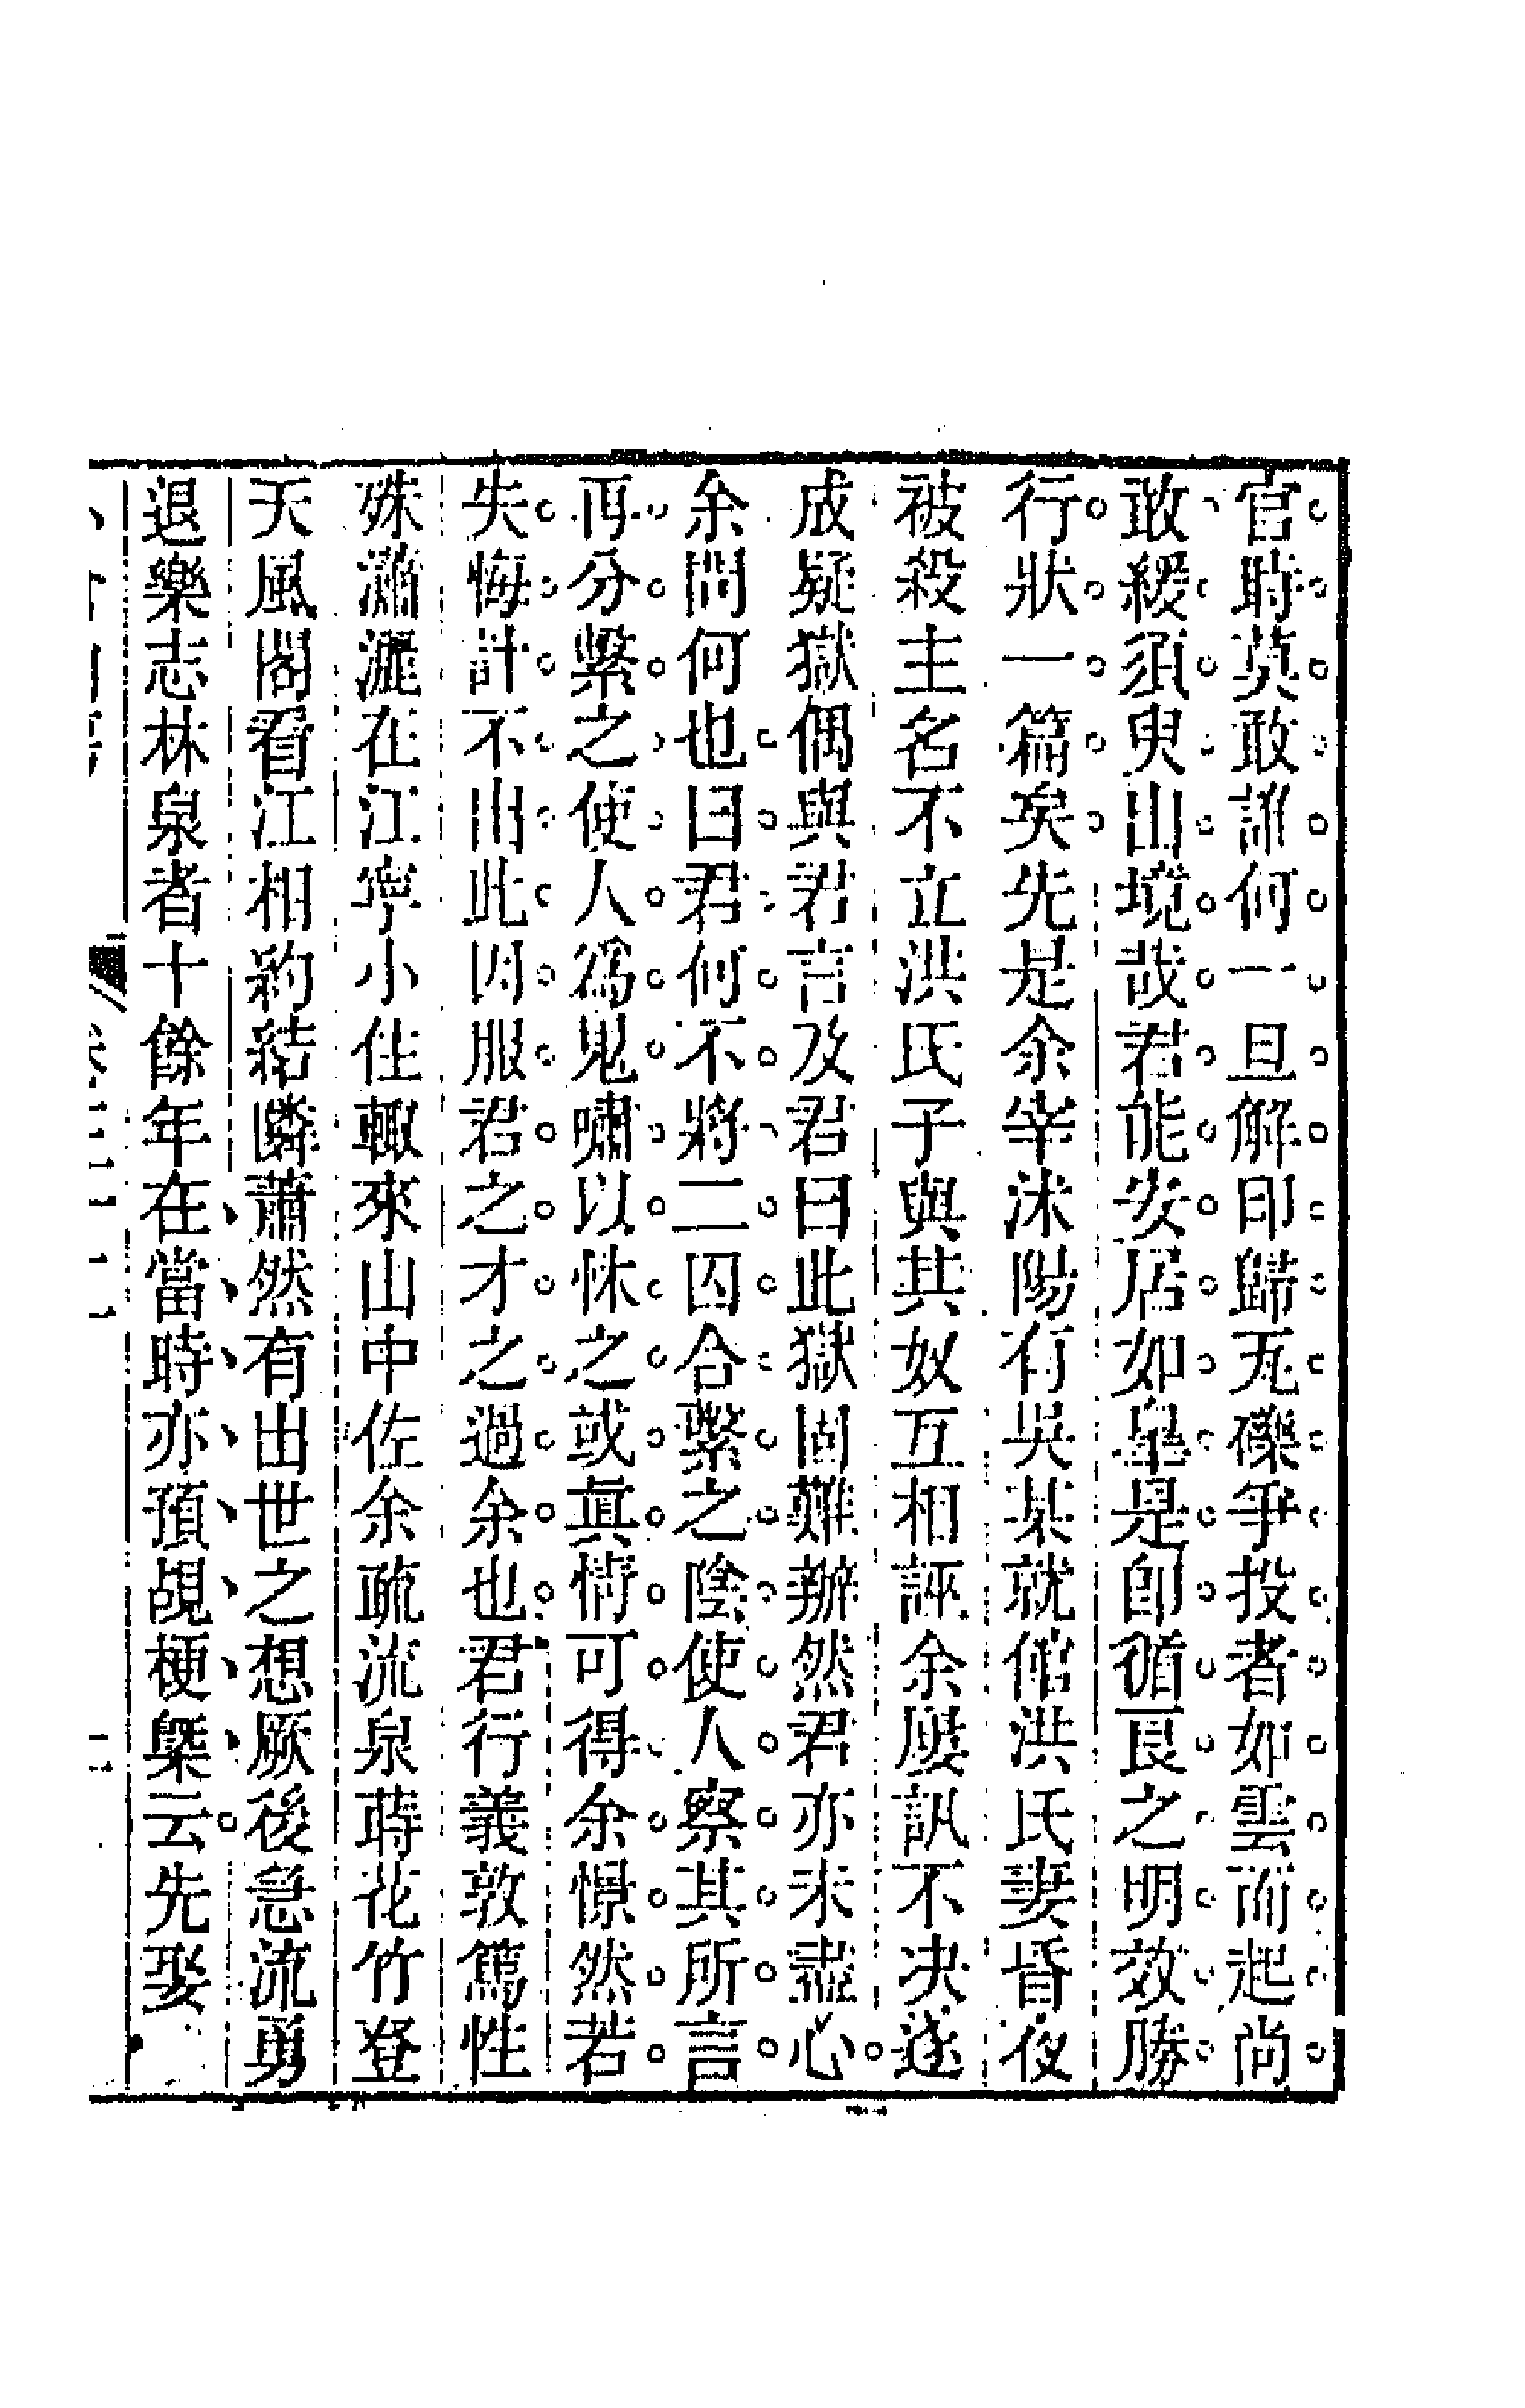 官時莫敢誰何一旦解印歸瓦礫爭投者如雲而起尚
敢緩須臾出境哉君能安居如皐是卽循良之明效勝
行狀一篇矣先是余宰沭陽有吳某就館洪氏妻昏夜
被殺主名不立洪氏子與其奴互相誣余屢訊不决遂
成疑獄偶與君言及君曰此獄固難辦然君亦未盡心
余問何也曰君何不將二囚合繫之陰使人察其所言
再分繫之使人爲鬼嘯以怵之或眞情可得余憬然若
失悔計不出此因服君之才之過余也君行義敦篤性
殊瀟灑在江寧小住輙來山中佐余疏流泉蒔花竹登
天風閣看江相約結鄰蕭然有出世之想厥後急流勇
退樂志林泉者十餘年在當時亦預覘梗槩云先娶